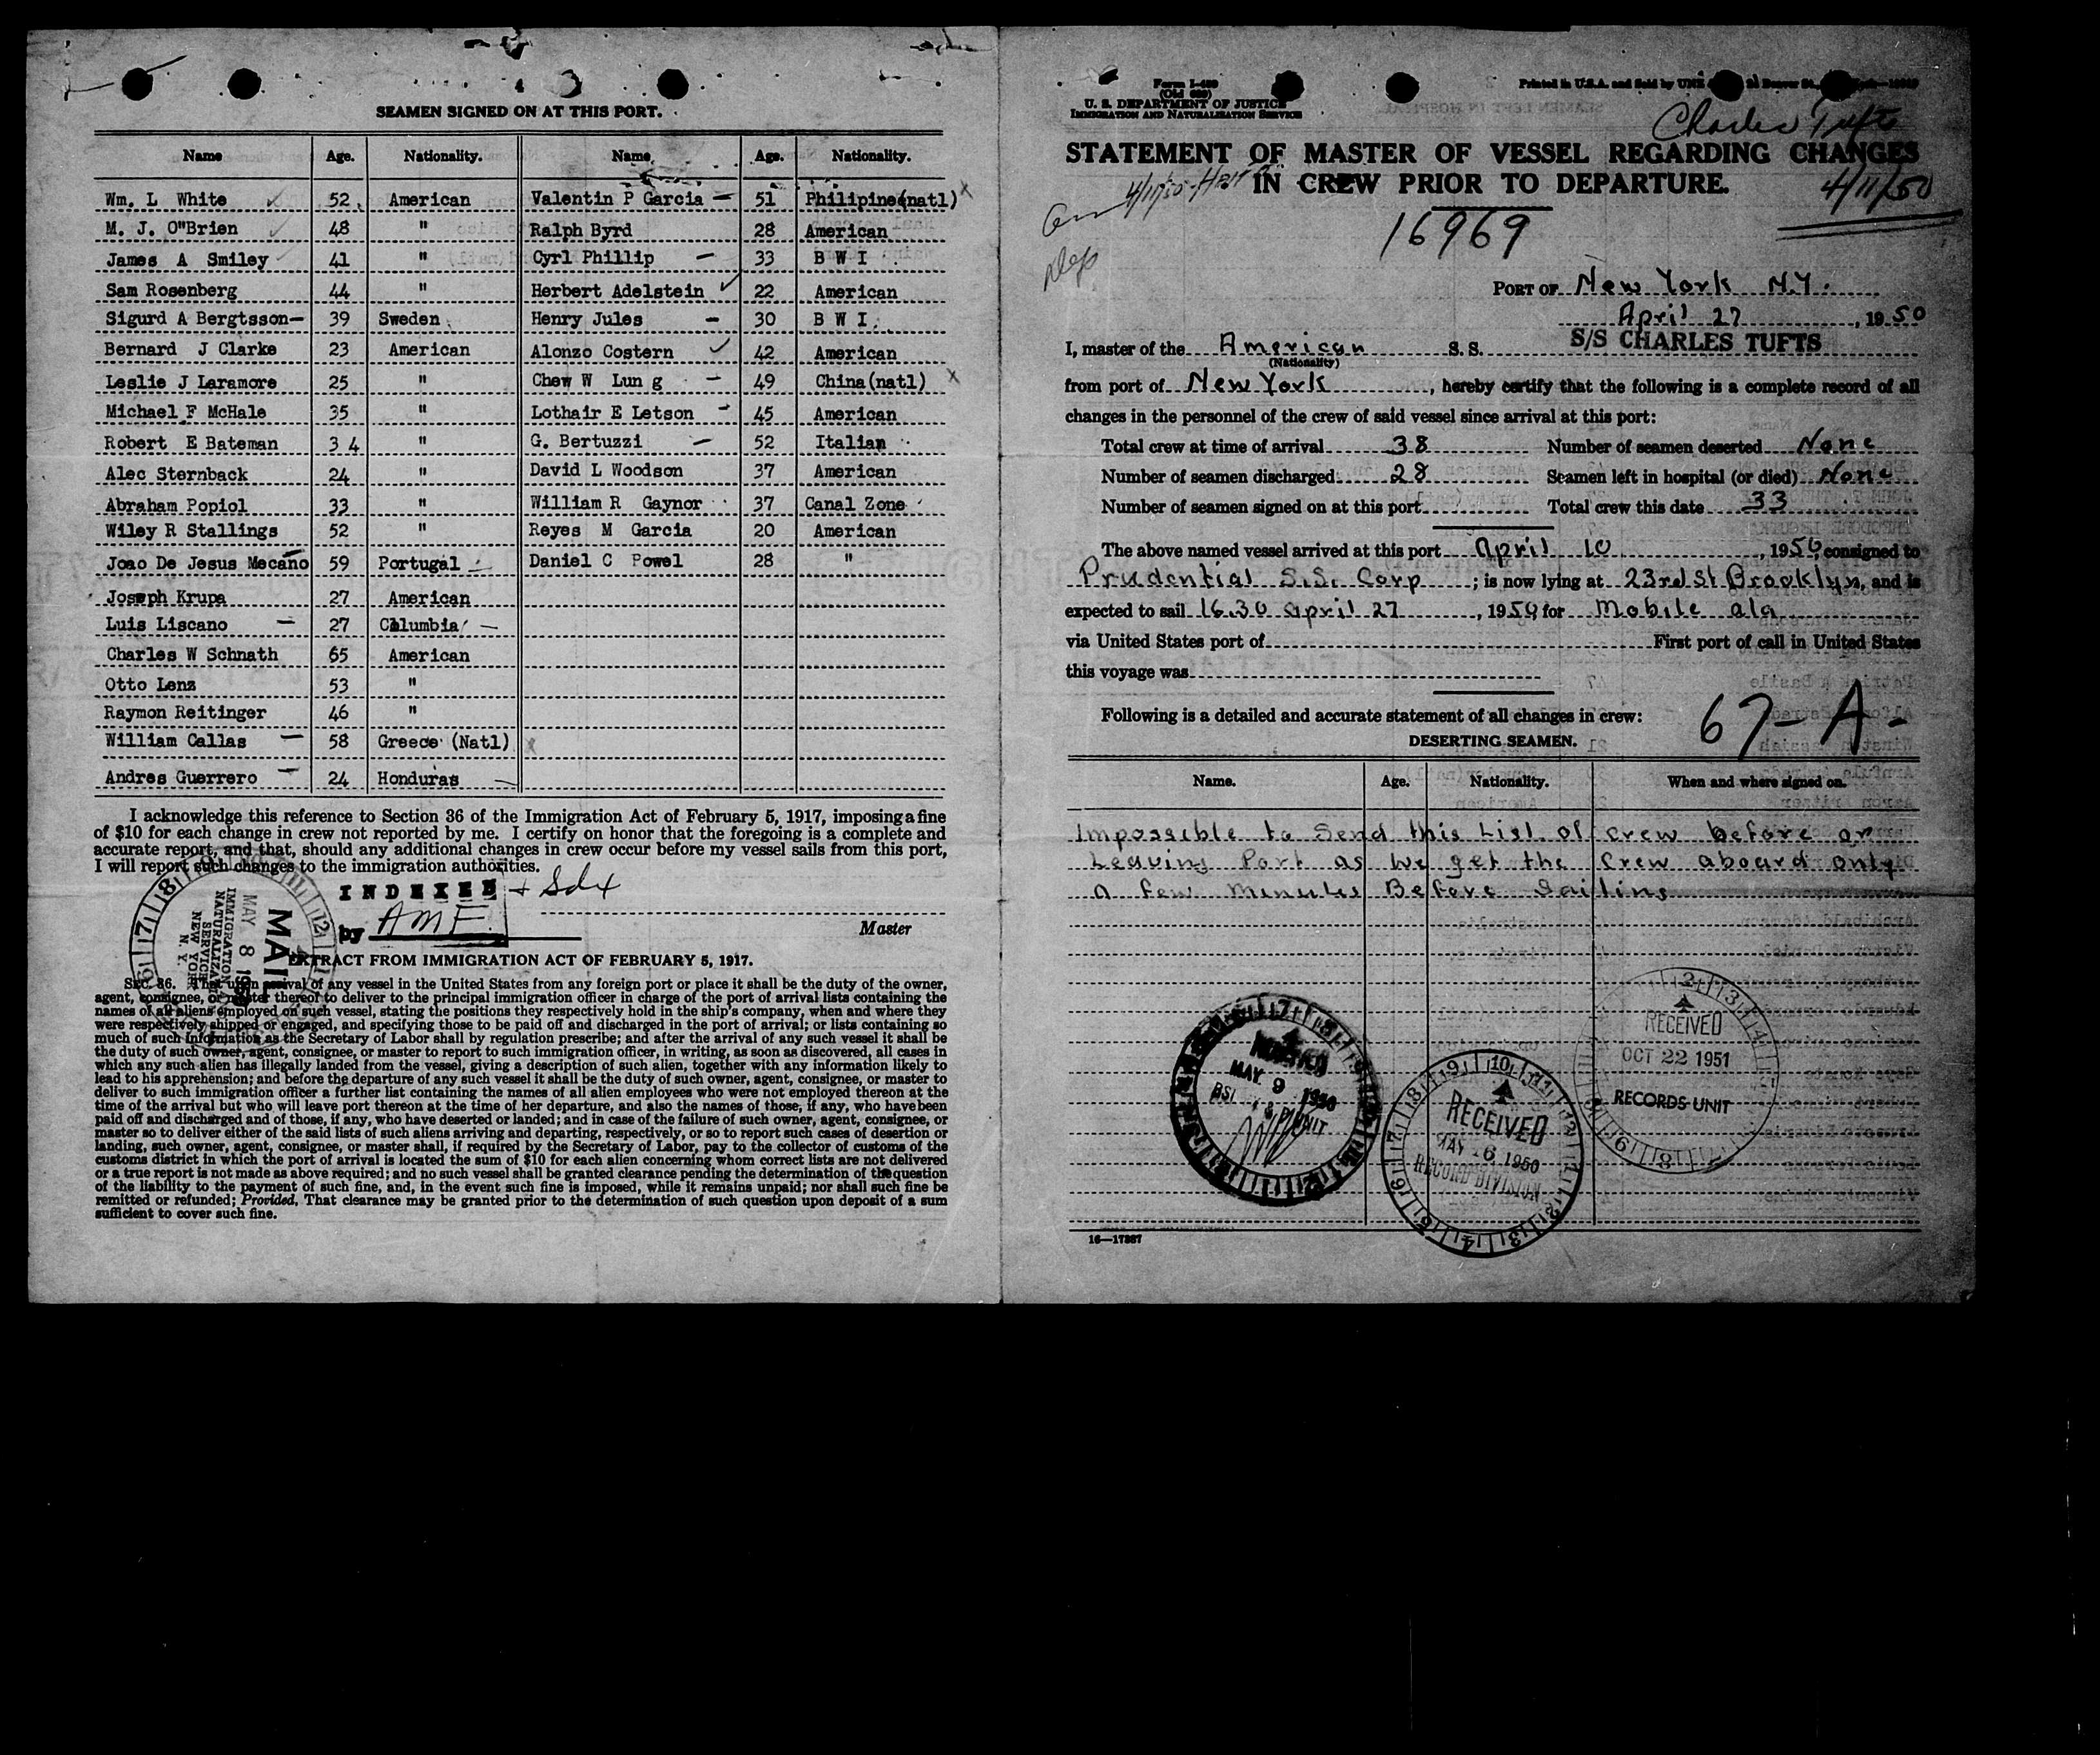 SEAMEN SIGNED ON AT THIS PORT.
Name Age. Nationality. Name Age. Nationality.
Wm. L White 52. American Valentin P Garcia — 51 Philipine(natl) x
M. J. O"Brien 48 " Ralph Byrd 28 American
James A Smiley 41 " Cyrl Phillip — 33 B W I
Sam Rosenberg 44 " Herbert Adelstein ✓ 22 American
Sigurd A Bergtsson— 39 Sweden Henry Jules — 30 B W I
Bernard J Clarke 23 American Alonzo Costern ✓ 42 American
Leslie J Laramore 25 " Chew W Lun g — 49 China(natl) x
Michael F McHale 35 " Lothair E Letson — 45 American
Robert E Bateman 3 4 " G. Bertuzzi — 52 Italian
Alec Sternback 24 " David L Woodson 37 American
Abraham Popiol 33 " William R Gaynor 37 Canal Zone
Wiley R Stallings 52 " Reyes M Garcia 20 American
Joao De Jesus Mecano 59 Portugal Daniel C Powel 28 "
Joseph Krupa 27 American
Luis Liscano — 27 Columbia —
Charles W Schnath 65 American
Otto Lenz 53 "
Raymon Reitinger 46 "
William Callas — 58 Greece (Natl) x
Andres Guerrero — 24 Honduras —
I acknowledge this reference to Section 36 of the Immigration Act of February 5, 1917, imposing a fine
of $10 for each change in crew not reported by me. I certify on honor that the foregoing is a complete and
accurate report, and that, should any additional changes in crew occur before my vessel sails from this port,
I will report such changes to the immigration authorities.
INDEXED
by AMF
Master
MAIL
MAY 8
IMMIGRATION
NATURALIZA
SERVICE
NEW YORK
N. Y.
EXTRACT FROM IMMIGRATION ACT OF FEBRUARY 5, 1917.
SEC. 36. That upon arrival of any vessel in the United States from any foreign port or place it shall be the duty of the owner,
agent, consignee, or master thereof to deliver to the principal immigration officer in charge of the port of arrival lists containing the
names of all aliens employed on such vessel, stating the positions they respectively hold in the ship's company, when and where they
were respectively shipped or engaged, and specifying those to be paid off and discharged in the port of arrival; or lists containing so
much of such information as the Secretary of Labor shall by regulation prescribe; and after the arrival of any such vessel it shall be
the duty of such owner, agent, consignee, or master to report to such immigration officer, in writing, as soon as discovered, all cases in
which any such alien has illegally landed from the vessel, giving a description of such alien, together with any information likely to
lead to his apprehension; and before the departure of any such vessel it shall be the duty of such owner, agent, consignee, or master to
deliver to such immigration officer a further list containing the names of all alien employees who were not employed thereon at the
time of the arrival but who will leave port thereon at the time of her departure, and also the names of those, if any, who have been
paid off and discharged and of those, if any, who have deserted or landed; and in case of the failure of such owner, agent, consignee, or
master so to deliver either of the said lists of such aliens arriving and departing, respectively, or so to report such cases of desertion or
landing, such owner, agent, consignee, or master shall, if required by the Secretary of Labor, pay to the collector of customs of the
customs district in which the port of arrival is located the sum of $10 for each alien concerning whom correct lists are not delivered
or a true report is not made as above required; and no such vessel shall be granted clearance pending the determination of the question
of the liability to the payment of such fine, and, in the event such fine is imposed, while it remains unpaid; nor shall such fine be
remitted or refunded; Provided, That clearance may be granted prior to the determination of such question upon deposit of a sum
sufficient to cover such fine.
U. S. DEPARTMENT OF JUSTICE
IMMIGRATION AND NATURALIZATION SERVICE
Printed in U.S.A. and Sold by
Charles Tufts
STATEMENT OF MASTER OF VESSEL REGARDING CHANGES
IN CREW PRIOR TO DEPARTURE.
4/11/50
16969
PORT OF New York N.Y.
April 27, 1950
I, master of the American S. S. S/S CHARLES TUFTS
(Nationality)
from port of New York, hereby certify that the following is a complete record of all
changes in the personnel of the crew of said vessel since arrival at this port:
Total crew at time of arrival 38 Number of seamen deserted None
Number of seamen discharged 28 Seamen left in hospital (or died) None
Number of seamen signed on at this port Total crew this date 33
The above named vessel arrived at this port April 10, 1950, consigned to
Prudential S.S. Corp; is now lying at 23rd St Brooklyn, and is
expected to sail 16.30 april 27, 1950, for Mobile ala
via United States port of First port of call in United States
this voyage was
Following is a detailed and accurate statement of all changes in crew:
67-A-
DESERTING SEAMEN.
Name. Age. Nationality. When and where signed on.
Impossible to Send this List of crew before or
Leaving Port as we get the Crew aboard only
a few Minutes Before Sailing
MAY 9 1950
UNIT
RECEIVED
MAY -6 1950
RECORD DIVISION
RECEIVED
OCT 22 1951
RECORDS UNIT
16—17387